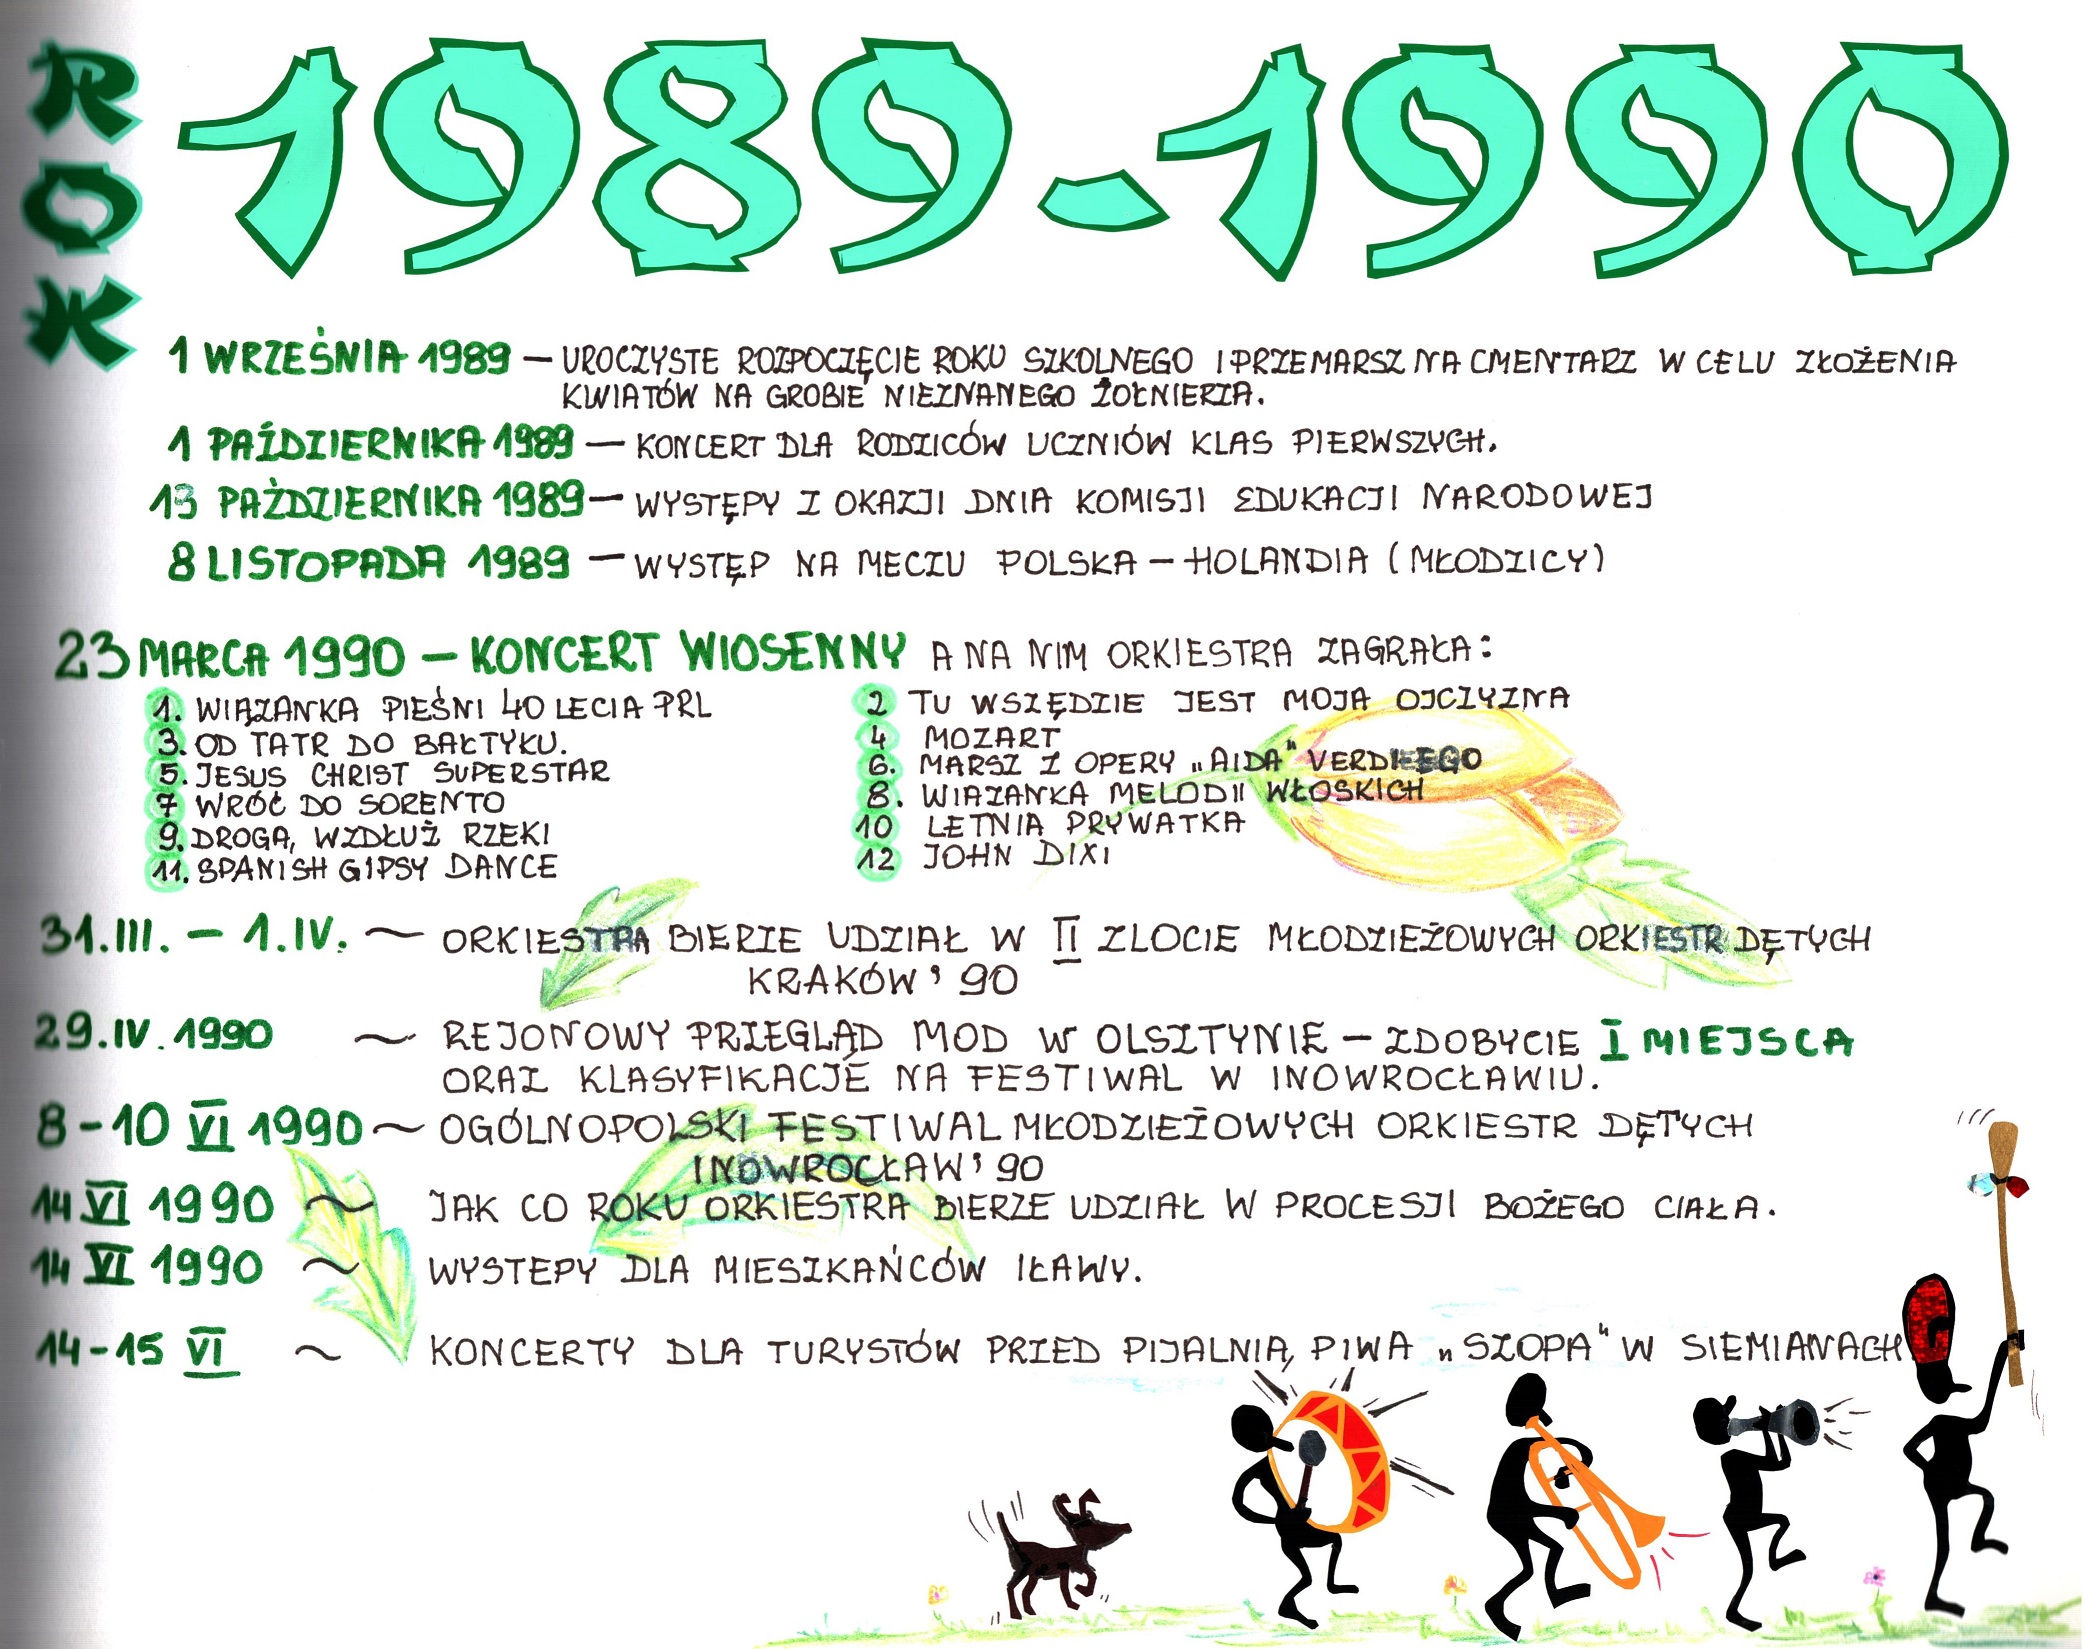 ROK 1989-1990
1 WRZEŚNIA 1989 — UROCZYSTE ROZPOCZĘCIE ROKU SZKOLNEGO I PRZEMARSZ NA CMENTARZ W CELU ZŁOŻENIA
KWIATÓW NA GROBIE NIEZNANEGO ŻOŁNIERZA.
1 PAŹDZIERNIKA 1989 — KONCERT DLA RODZICÓW UCZNIÓW KLAS PIERWSZYCH.
13 PAŹDZIERNIKA 1989 — WYSTĘPY Z OKAZJI DNIA KOMISJI EDUKACJI NARODOWEJ
8 LISTOPADA 1989 — WYSTĘP NA MECZU POLSKA — HOLANDIA (MŁODZICY)
23 MARCA 1990 — KONCERT WIOSENNY A NA NIM ORKIESTRA ZAGRAŁA:
1. WIĄZANKA PIEŚNI 40 LECIA PRL
2 TU WSZĘDZIE JEST MOJA OJCZYZNA
3. OD TATR DO BAŁTYKU.
4 MOZART
5. JESUS CHRIST SUPERSTAR
6. MARSZ Z OPERY „AIDA" VERDIEGO
7 WRÓĆ DO SORENTO
8. WIĄZANKA MELODII WŁOSKICH
9. DROGĄ WZDŁUŻ RZEKI
10 LETNIA PRYWATKA
11. SPANISH GIPSY DANCE
12 JOHN DIXI
31.III. — 1.IV. ~ ORKIESTRA BIERZE UDZIAŁ W II ZLOCIE MŁODZIEŻOWYCH ORKIESTR DĘTYCH
KRAKÓW '90
29.IV.1990 ~ REJONOWY PRZEGLĄD MOD W OLSZTYNIE — ZDOBYCIE I MIEJSCA
ORAZ KLASYFIKACJE NA FESTIWAL W INOWROCŁAWIU.
8-10 VI 1990 ~ OGÓLNOPOLSKI FESTIWAL MŁODZIEŻOWYCH ORKIESTR DĘTYCH
INOWROCŁAW '90
14 VI 1990 ~ JAK CO ROKU ORKIESTRA BIERZE UDZIAŁ W PROCESJI BOŻEGO CIAŁA.
14 VI 1990 ~ WYSTEPY DLA MIESZKAŃCÓW IŁAWY.
14-15 VI ~ KONCERTY DLA TURYSTÓW PRZED PIJALNIĄ PIWA „SZOPA" W SIEMIANACH